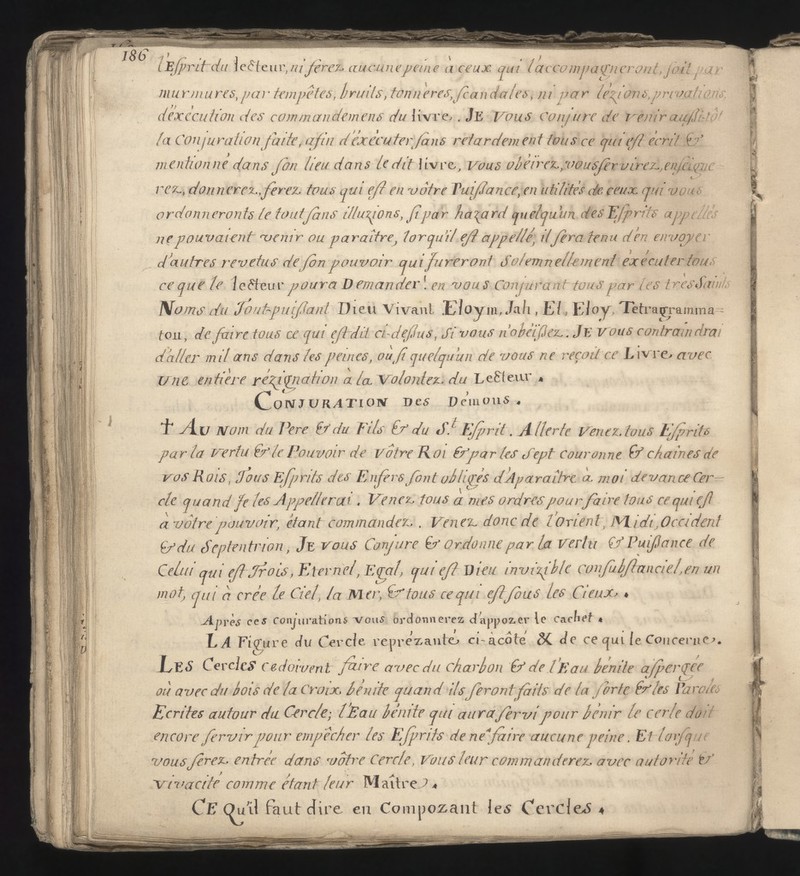 186
l'Esprit du lecteur, ni ferez aucune peine à ceux qui l'accompagneront, soit par
murmures, par tempêtes, bruits, tonnerres, scandales, ni par lézions, privations
d'éxécution des commandemens du livre,. JE Vous Conjure de venir aussitôt
la Conjuration faite, afin d'éxécuter sans retardement tous ce qui est écrit &
mentionné dans son lieu dans le dit livre, Vous obéirez, vous servirez, enseigne-
rez, donnerez, ferez tous qui est en vôtre Puissance, en utilités de ceux qui vous
ordonneronts le tout sans illuzions, si par hazard quelqu'un des Esprits appellés
ne pouvaient venir ou paraître, lorqu'il est appellé, il sera tenu d'en envoyer
d'autres revetus de son pouvoir qui jureront Solemnellement éxécuter tous
ce que le lecteur poura Demander! en vous Conjurant tous par les très Saints
Noms du Tout-puissant Dieu Vivant Eloym, Jah, El, Eloy, Tétragramma=
ton, de faire tous ce qui est dit ci-dessus, Si vous n'obéissez,. JE Vous contraindrai
d'aller mil ans dans les peines, où si quelqu'un de vous ne reçoit ce Livre, avec
Une entière rézignation à la Volontez du Lecteur.
CONJURATION Des Démons.
† AU Nom du Pere & du Fils & du S.t Esprit. Allerte Venez, tous Esprits
par la Vertu & le Pouvoir de Vôtre Roi & par les Sept Couronne & chaînes de
vos Rois, Tous Esprits des Enfers sont obligés d'Aparaître à moi devan ce Cer=
cle quand je les Appellerai. Venez tous à mes ordres pour faire tous ce qui est
à vôtre pouvoir, étant commandez. . Venez donc de l'Orient, Midi, Occident
& du Septentrion, JE vous Conjure & Ordonne par la Vertu & Puissance de
Celui qui est Trois, Eternel, Egal, qui est Dieu invizible consubstanciel, en un
mot, qui à crée le Ciel, la Mer, & tous ce qui est sous les Cieux.
Après ces conjurations vous ordonnerez d'appozer le cachet.
LA Figure du Cercle représantée ci-àcôté & de ce qui le Concerne.
LES Cercles ce doivent faire avec du charbon & de l'Eau bénite aspergée
où avec du bois de la Croix bénite quand ils seront faits de la sorte & les Paroles
Ecrites autour du Cercle; l'Eau bénite qui aura servi pour bénir le cerle doit
encore servir pour empêcher les Esprits de ne faire aucune peine. Et lorsque
vous serez entrée dans vôtre Cercle, Vous leur commanderez avec autorité &
Vivacité comme étant leur Maître.
CE Qu'il faut dire en Compozant les Cercles.